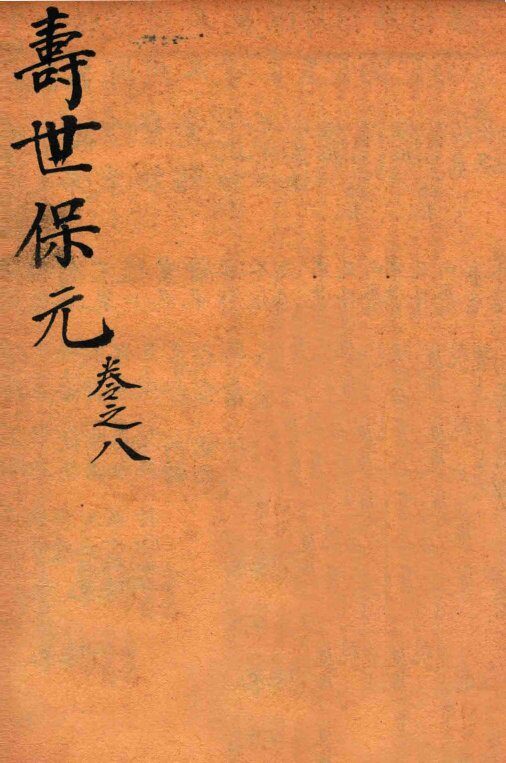 壽世保元
卷之八